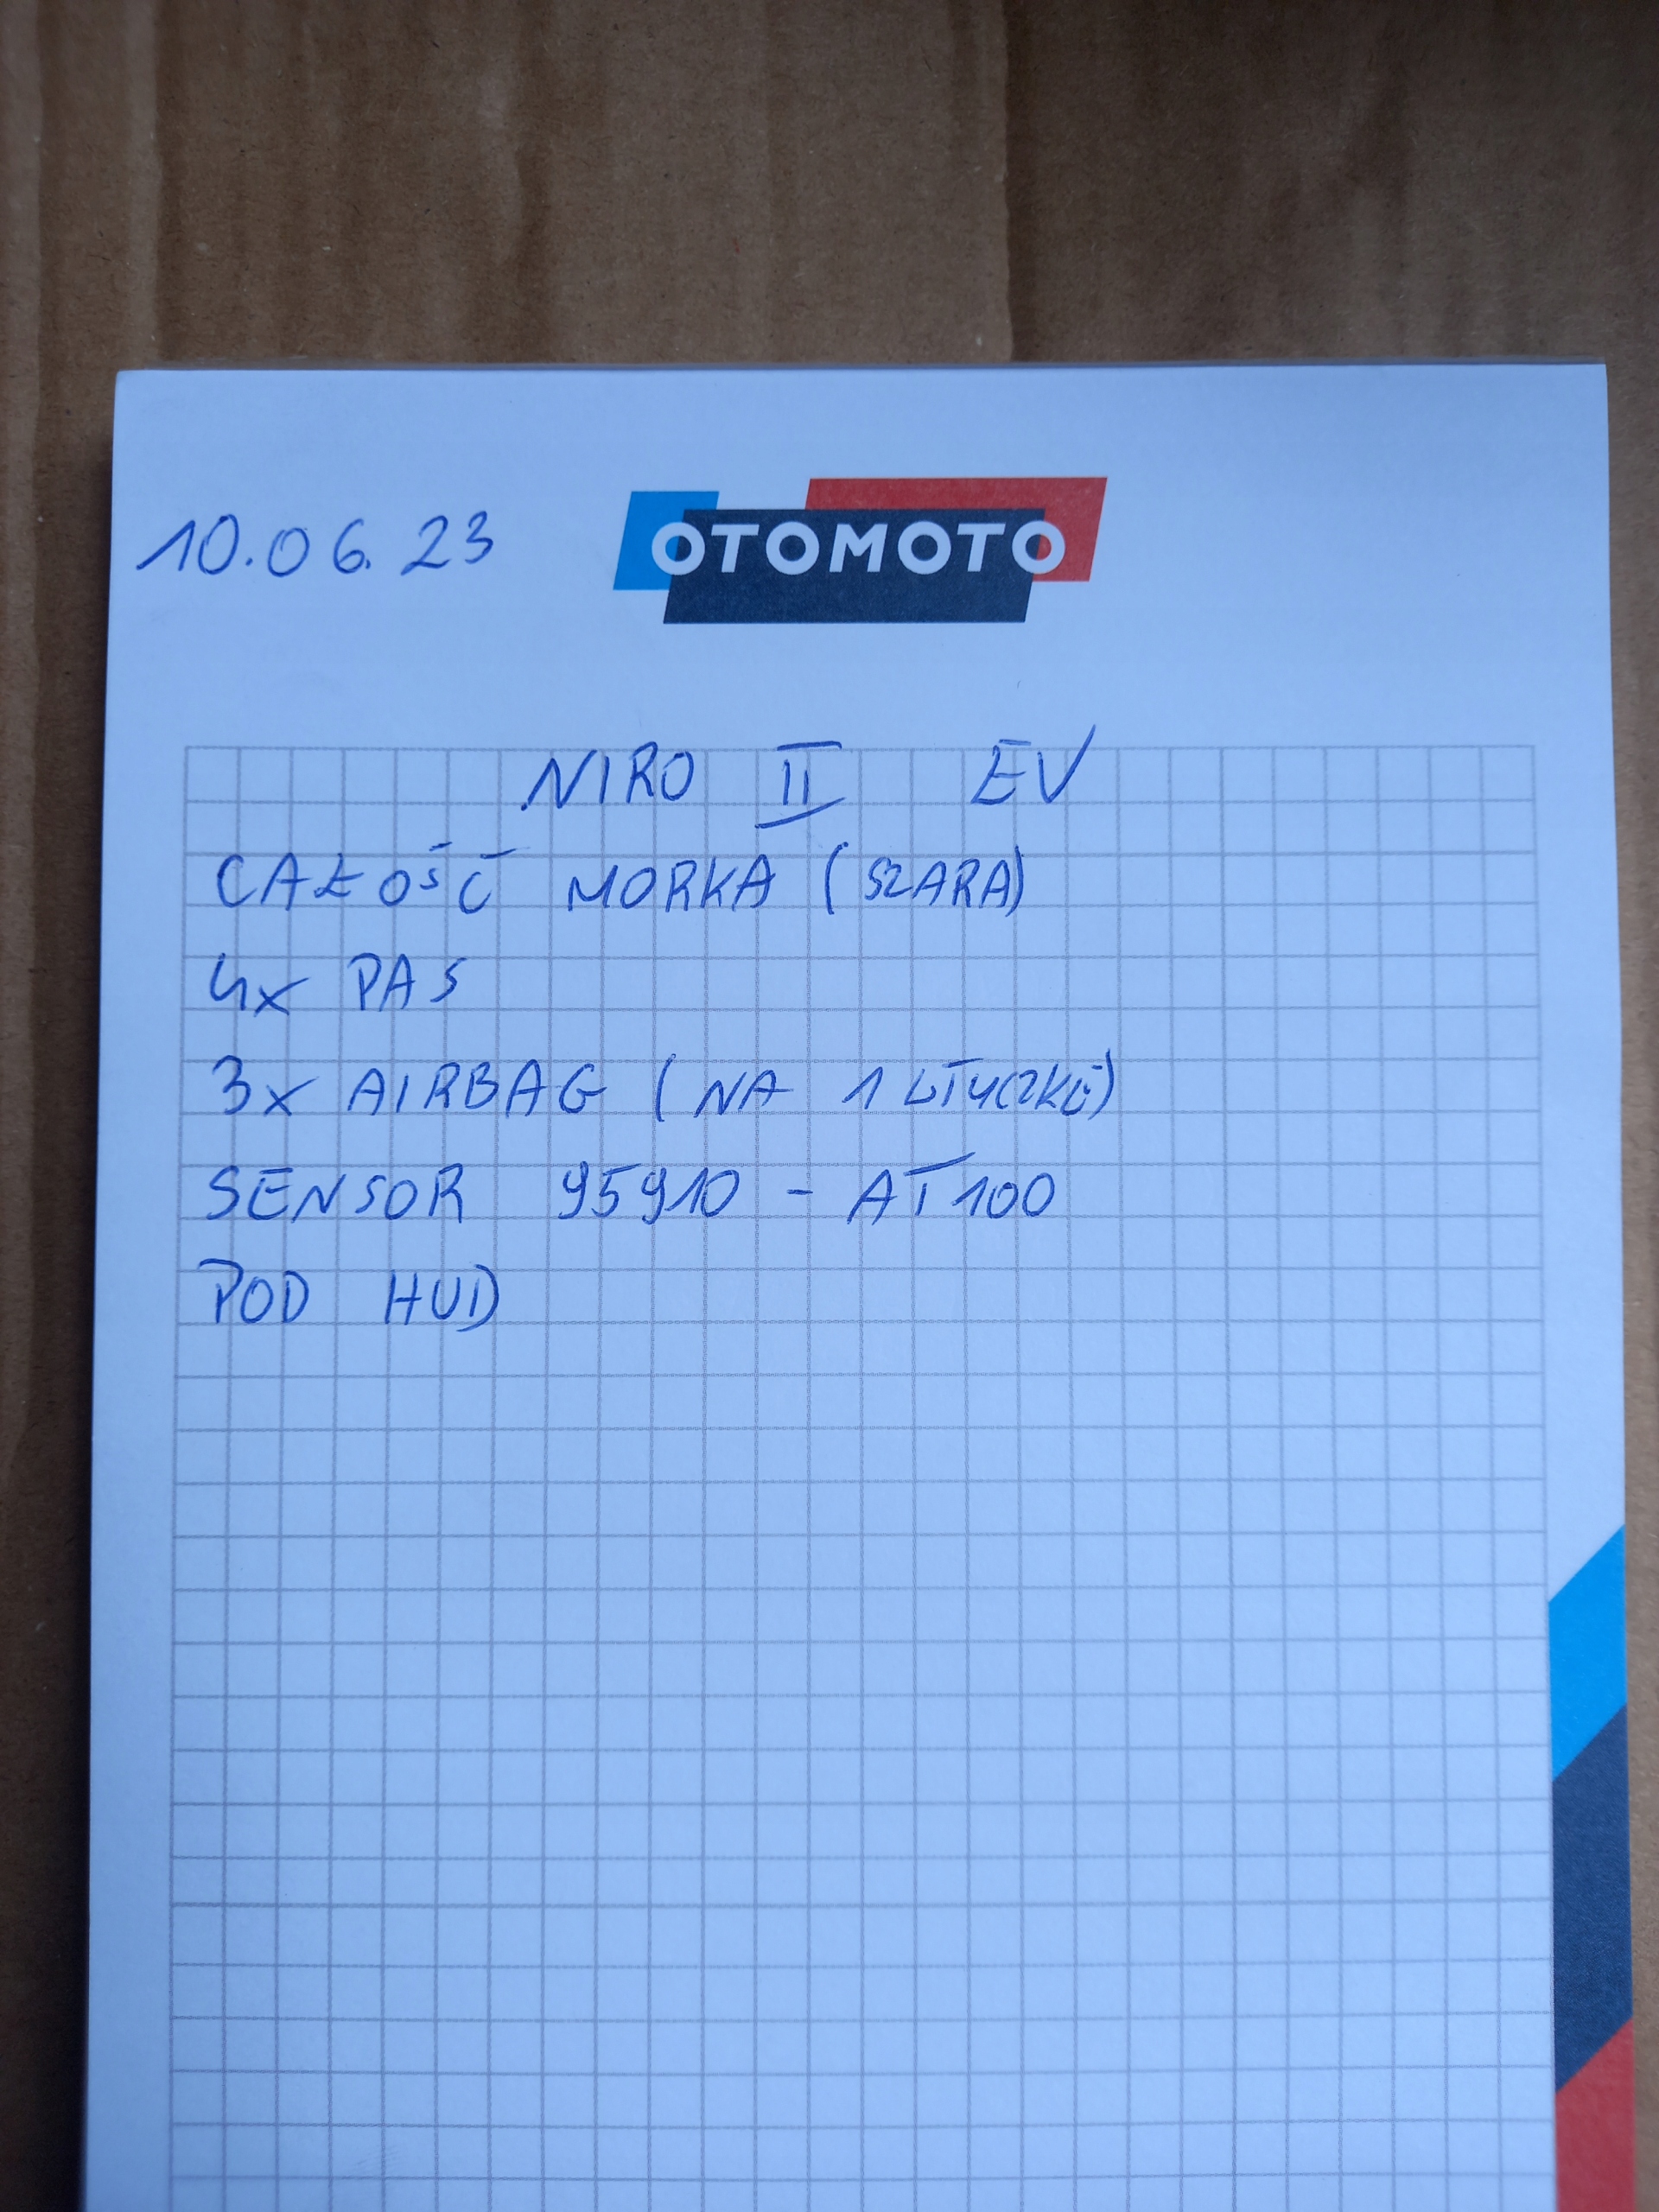 10.06.23 OTOMOTO
NIRO II EV
CAŁOŚĆ MORKA (SZARA)
4x PAS
3x AIRBAG (NA 1 WTYCZKĘ)
SENSOR 95910 - AT100
POD HUD